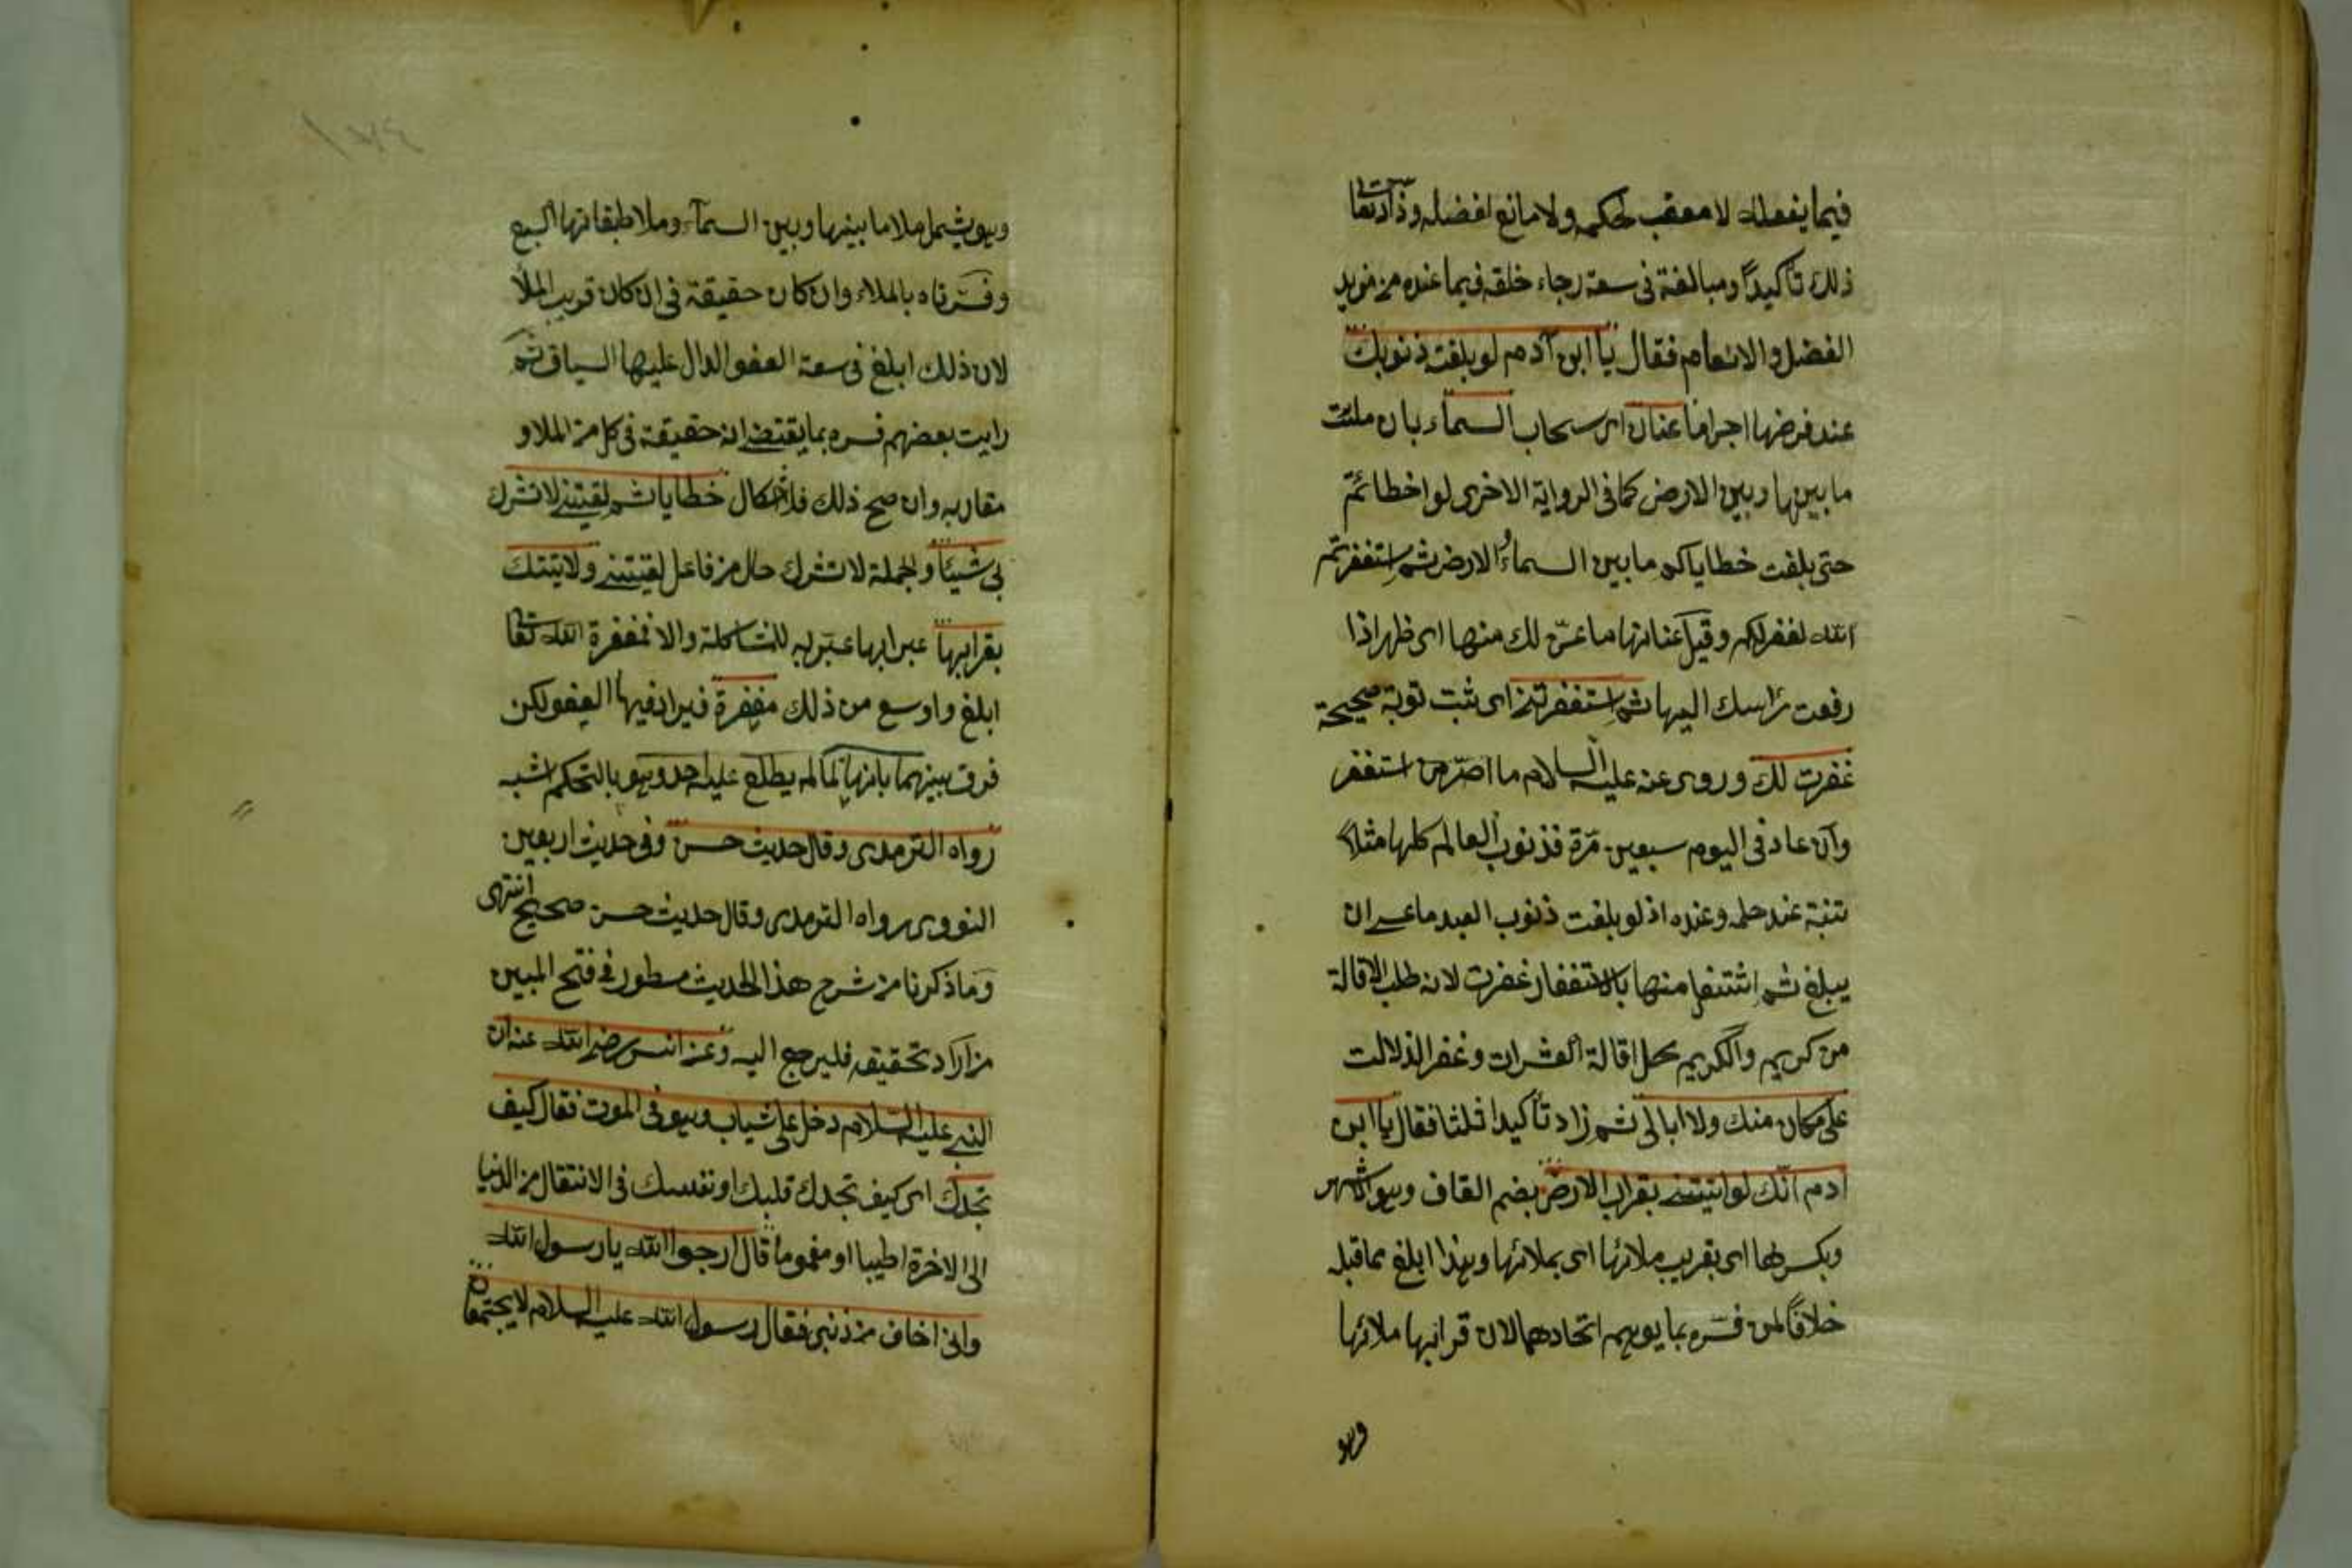 فيما يفعله لا معقب لحكمه ولا مانع لفضله وزاد تعالى
ذلك تأكيدًا ومبالغة في سعة رجاء خلقه فيما عنده من مزيد
الفضل والانعام فقال يا ابن آدم لو بلغت ذنوبك
عند فرضها اجراما عنان اى سحاب السماء بان ملئت
ما بينها وبين الارض كما في الرواية الاخرى لو اخطائتم
حتى بلغت خطاياكم ما بين السماء والارض ثم استغفرتم
الله لغفر لكم وقيل عنانها ما عنّ لك منها اى ظهر اذا
رفعت راسك اليها ثم استغفرتني اى تبت توبة صحيحة
غفرت لك وروى عنه عليه السلام ما اصرّ من استغفر
وان عاد في اليوم سبعين مرّة فذنوب العالم كلها مثلا
عند حلمه وعنده اذ لو بلغت ذنوب العبد ما عسى ان
يبلغ ثم منها بالاستغفار غفرت لانه طلب الاقالة
من كريم والكريم محل اقالة العثرات وغفر الذلالت
على مكان منك ولا ابالى ثم زاد تأكيدا ثلثا فقال يا ابن
ادم انّك لو اتيتني بقراب الارض بضم القاف وهو الاشهر
وبكسرها اى بقريب ملائها اى بملائها وهذا ابلغ مما قبله
خلافًا لمن فسّره بما يوهم اتحادهما لان قرابها ملائها
وهو
وهو يشمل ملا ما بينها وبين السمآء وملا طبقاتها السبع
وفسّرناه بالملاء وان كان حقيقة في ان كان قريب الملأ
لان ذلك ابلغ في سعة العفو الدال عليها السياق ثم
رايت بعضهم فسره بما يقتضى انه حقيقة في كل من الملا و
مقاربه وان صح ذلك فلا اشكال خطايا ثم لقيتني لا تشرك
بى شيئا والجملة لا تشرك حال من فاعل لقيتني ولاتيتك
بقرابها عبر ابها عبّر به للمشاكلة والا فمغفرة الله تعالى
ابلغ واوسع من ذلك مغفرة فيرادفها العفو لكن
فرق بينهما بانها لما لم يطلع عليه احد وهو بالتحكم اشبه
رواه الترمذى وقال حديث حسن وفى حديث اربعين
النووى رواه الترمذى وقال حديث حسن صحيح انتهى
وما ذكرنا من شرح هذا الحديث مسطور في فتح المبين
من اراد تحقيقه فليرجع اليه وعن انس رضى الله عنه ان
النبى عليه السلام دخل على شباب وهو في الموت فقال كيف
تجدك اى كيف تجدك قلبك او نفسك في الانتقال من الدنيا
الى الاخرة اطيبا او مغموما قال ارجوا الله يا رسول الله
وانى اخاف من ذنبى فقال رسول الله عليه السلام لا يجتمعان